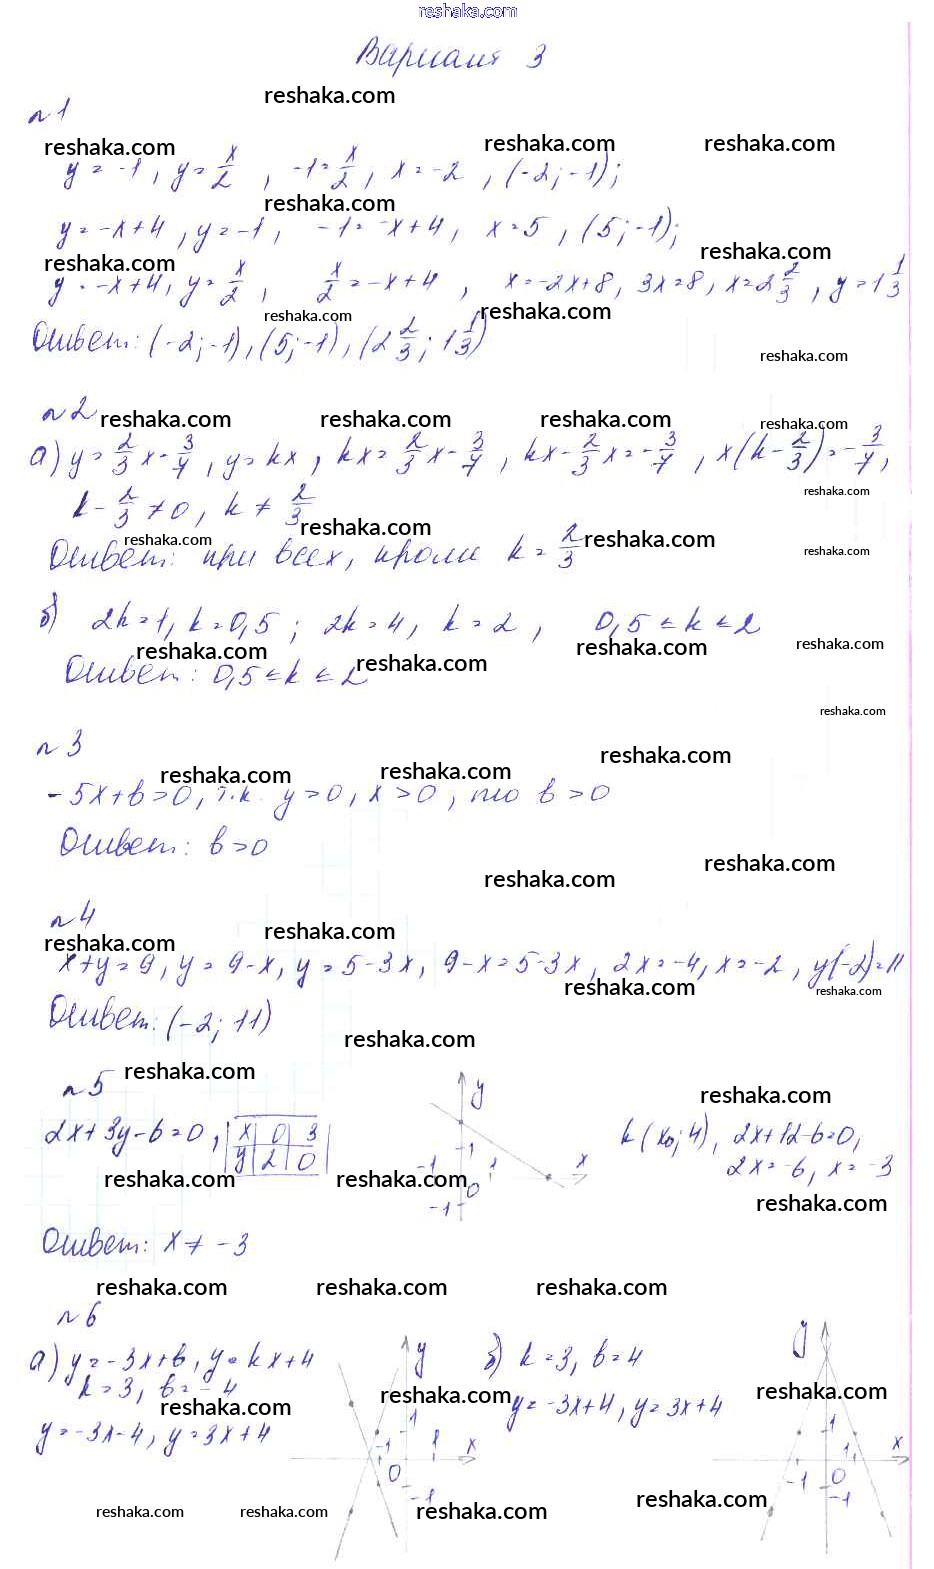 reshaka.com
Вариант 3
reshaka.com
№1
reshaka.com reshaka.com reshaka.com
y = -1, y = x/2, -1 = x/2, x = -2, (-2; -1);
reshaka.com
y = -x+4, y = -1, -1 = -x+4, x = 5, (5; -1);
reshaka.com reshaka.com
y = -x+4, y = x/2, x/2 = -x+4, x = -2x+8, 3x = 8, x = 2 2/3, y = 1 1/3
reshaka.com reshaka.com
Ответ: (-2; -1), (5; -1), (2 2/3; 1 1/3)
reshaka.com
№2
reshaka.com reshaka.com reshaka.com reshaka.com
а) y = 2/3 x - 3/7, y = kx, kx = 2/3 x - 3/7, kx - 2/3 x = -3/7, x(k - 2/3) = -3/7,
reshaka.com
k - 2/3 ≠ 0, k ≠ 2/3
reshaka.com reshaka.com reshaka.com reshaka.com
Ответ: при всех, кроме k = 2/3
б) 2k = 1, k = 0,5; 2k = 4, k = 2, 0,5 ≤ k ≤ 2
reshaka.com reshaka.com reshaka.com reshaka.com
Ответ: 0,5 ≤ k ≤ 2
reshaka.com
№3
reshaka.com reshaka.com reshaka.com
-5x+b>0, т.к. y>0, x>0, то b>0
Ответ: b>0
reshaka.com reshaka.com
№4
reshaka.com reshaka.com
x+y=9, y=9-x, y=5-3x, 9-x=5-3x, 2x=-4, x=-2, y(-2)=11
reshaka.com reshaka.com
Ответ: (-2; 11)
reshaka.com
№5
reshaka.com reshaka.com
2x+3y-6=0, x 0 3
y 2 0
y
1
-1 1 x
0
-1
k(x₀; 4), 2x+12-6=0,
2x=-6, x=-3
reshaka.com reshaka.com reshaka.com
Ответ: x ≠ -3
reshaka.com reshaka.com reshaka.com
№6
а) y=-3x+b, y=kx+4
k=3, b=-4
y=-3x-4, y=3x+4
y
1
-1 1 x
0
-1
б) k=3, b=4
y=-3x+4, y=3x+4
y
1
1 x
-1 0
-1
reshaka.com reshaka.com reshaka.com
reshaka.com reshaka.com reshaka.com reshaka.com